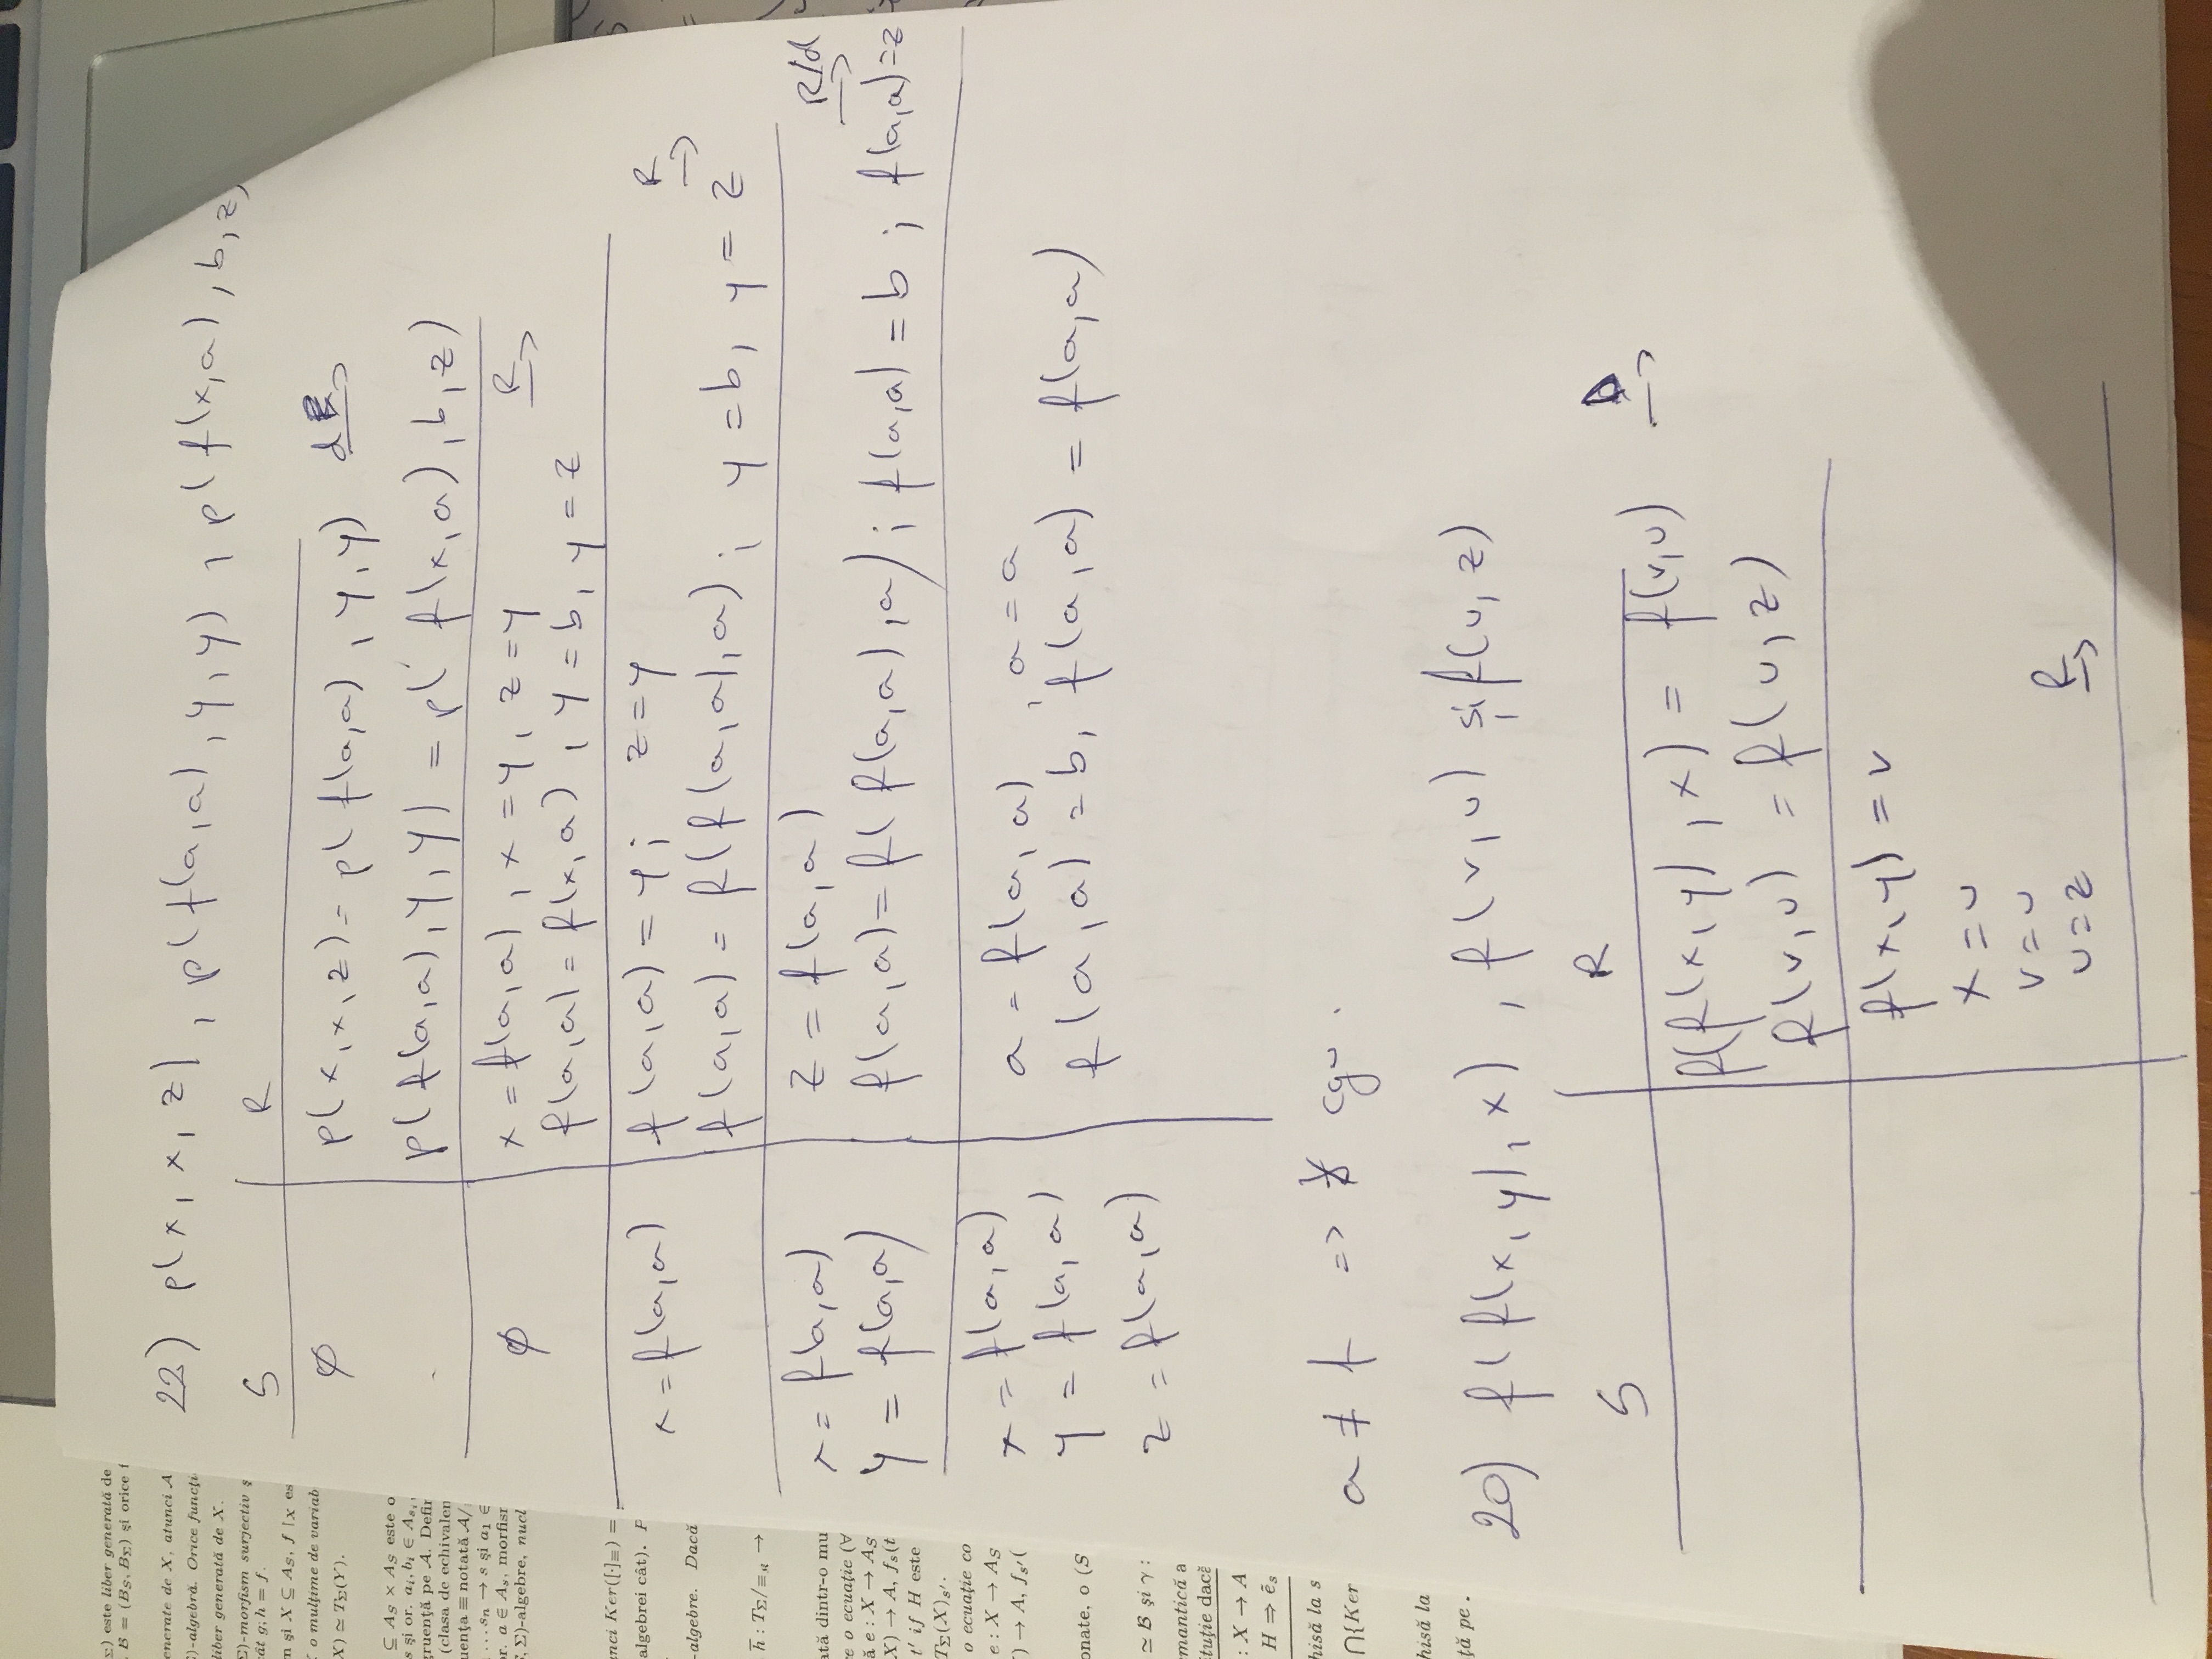 Σ) este liber generată de
B = (B_S, B_Σ) şi orice f
enerate de X, atunci A
)-algebră. Orice funcţi
liber generată de X.
Σ)-morfism surjectiv ş
cât g; h = f.
n şi X ⊆ A_S, f ↾X es
o mulţime de variab
X) ≃ T_Σ(Y).
⊆ A_S × A_S este o
s şi or. a_i, b_i ∈ A_{s_i},
gruenţă pe A. Defin
(clasa de echivalen
uenţa ≡ notată A/
...s_n → s şi a_1 ∈
or. a ∈ A_s, morfisr
S, Σ)-algebre, nucl
nci Ker([·]≡) =
algebrei cât). P
-algebre. Dacă
h̄ : T_Σ/≡ →
ată dintr-o mu
e o ecuaţie (∀
ă e : X → A_S
X) → A, f_s(t
t' if H este
T_Σ(X)_s'.
o ecuaţie co
e : X → A_S
) → A, f_s'(
onate, o (S
≃ B şi γ :
emantică a
ituţie dacă
: X → A
H ⇒ ẽ_s
hisă la s
⋂{Ker
hisă la
ţă pe .
22) p(x, x, z), p(f(a,a), y, y), p(f(x,a), b, z)
S R
∅ p(x, x, z) = p(f(a,a), y, y)
p(f(a,a), y, y) = p(f(x,a), b, z)
∅ x = f(a,a), x = y, z = y R→
f(a,a) = f(x,a), y = b, y = z
x = f(a,a) f(a,a) = y; z = y R→
f(a,a) = f(f(a,a),a); y = b, y = z
x = f(a,a) z = f(a,a) R/d→
y = f(a,a) f(a,a) = f(f(a,a),a); f(a,a) = b; f(a,a) = z
x = f(a,a) a = f(a,a), a = a
y = f(a,a) f(a,a) = b, f(a,a) = f(a,a)
z = f(a,a)
a ≠ f => ∄ cgu.
20) f(f(x,y),x), f(v,u) și f(u,z)
S R D→
f(f(x,y),x) = f(v,u)
f(v,u) = f(u,z)
f(x,y) = v
x = u
v = u
u = z R→